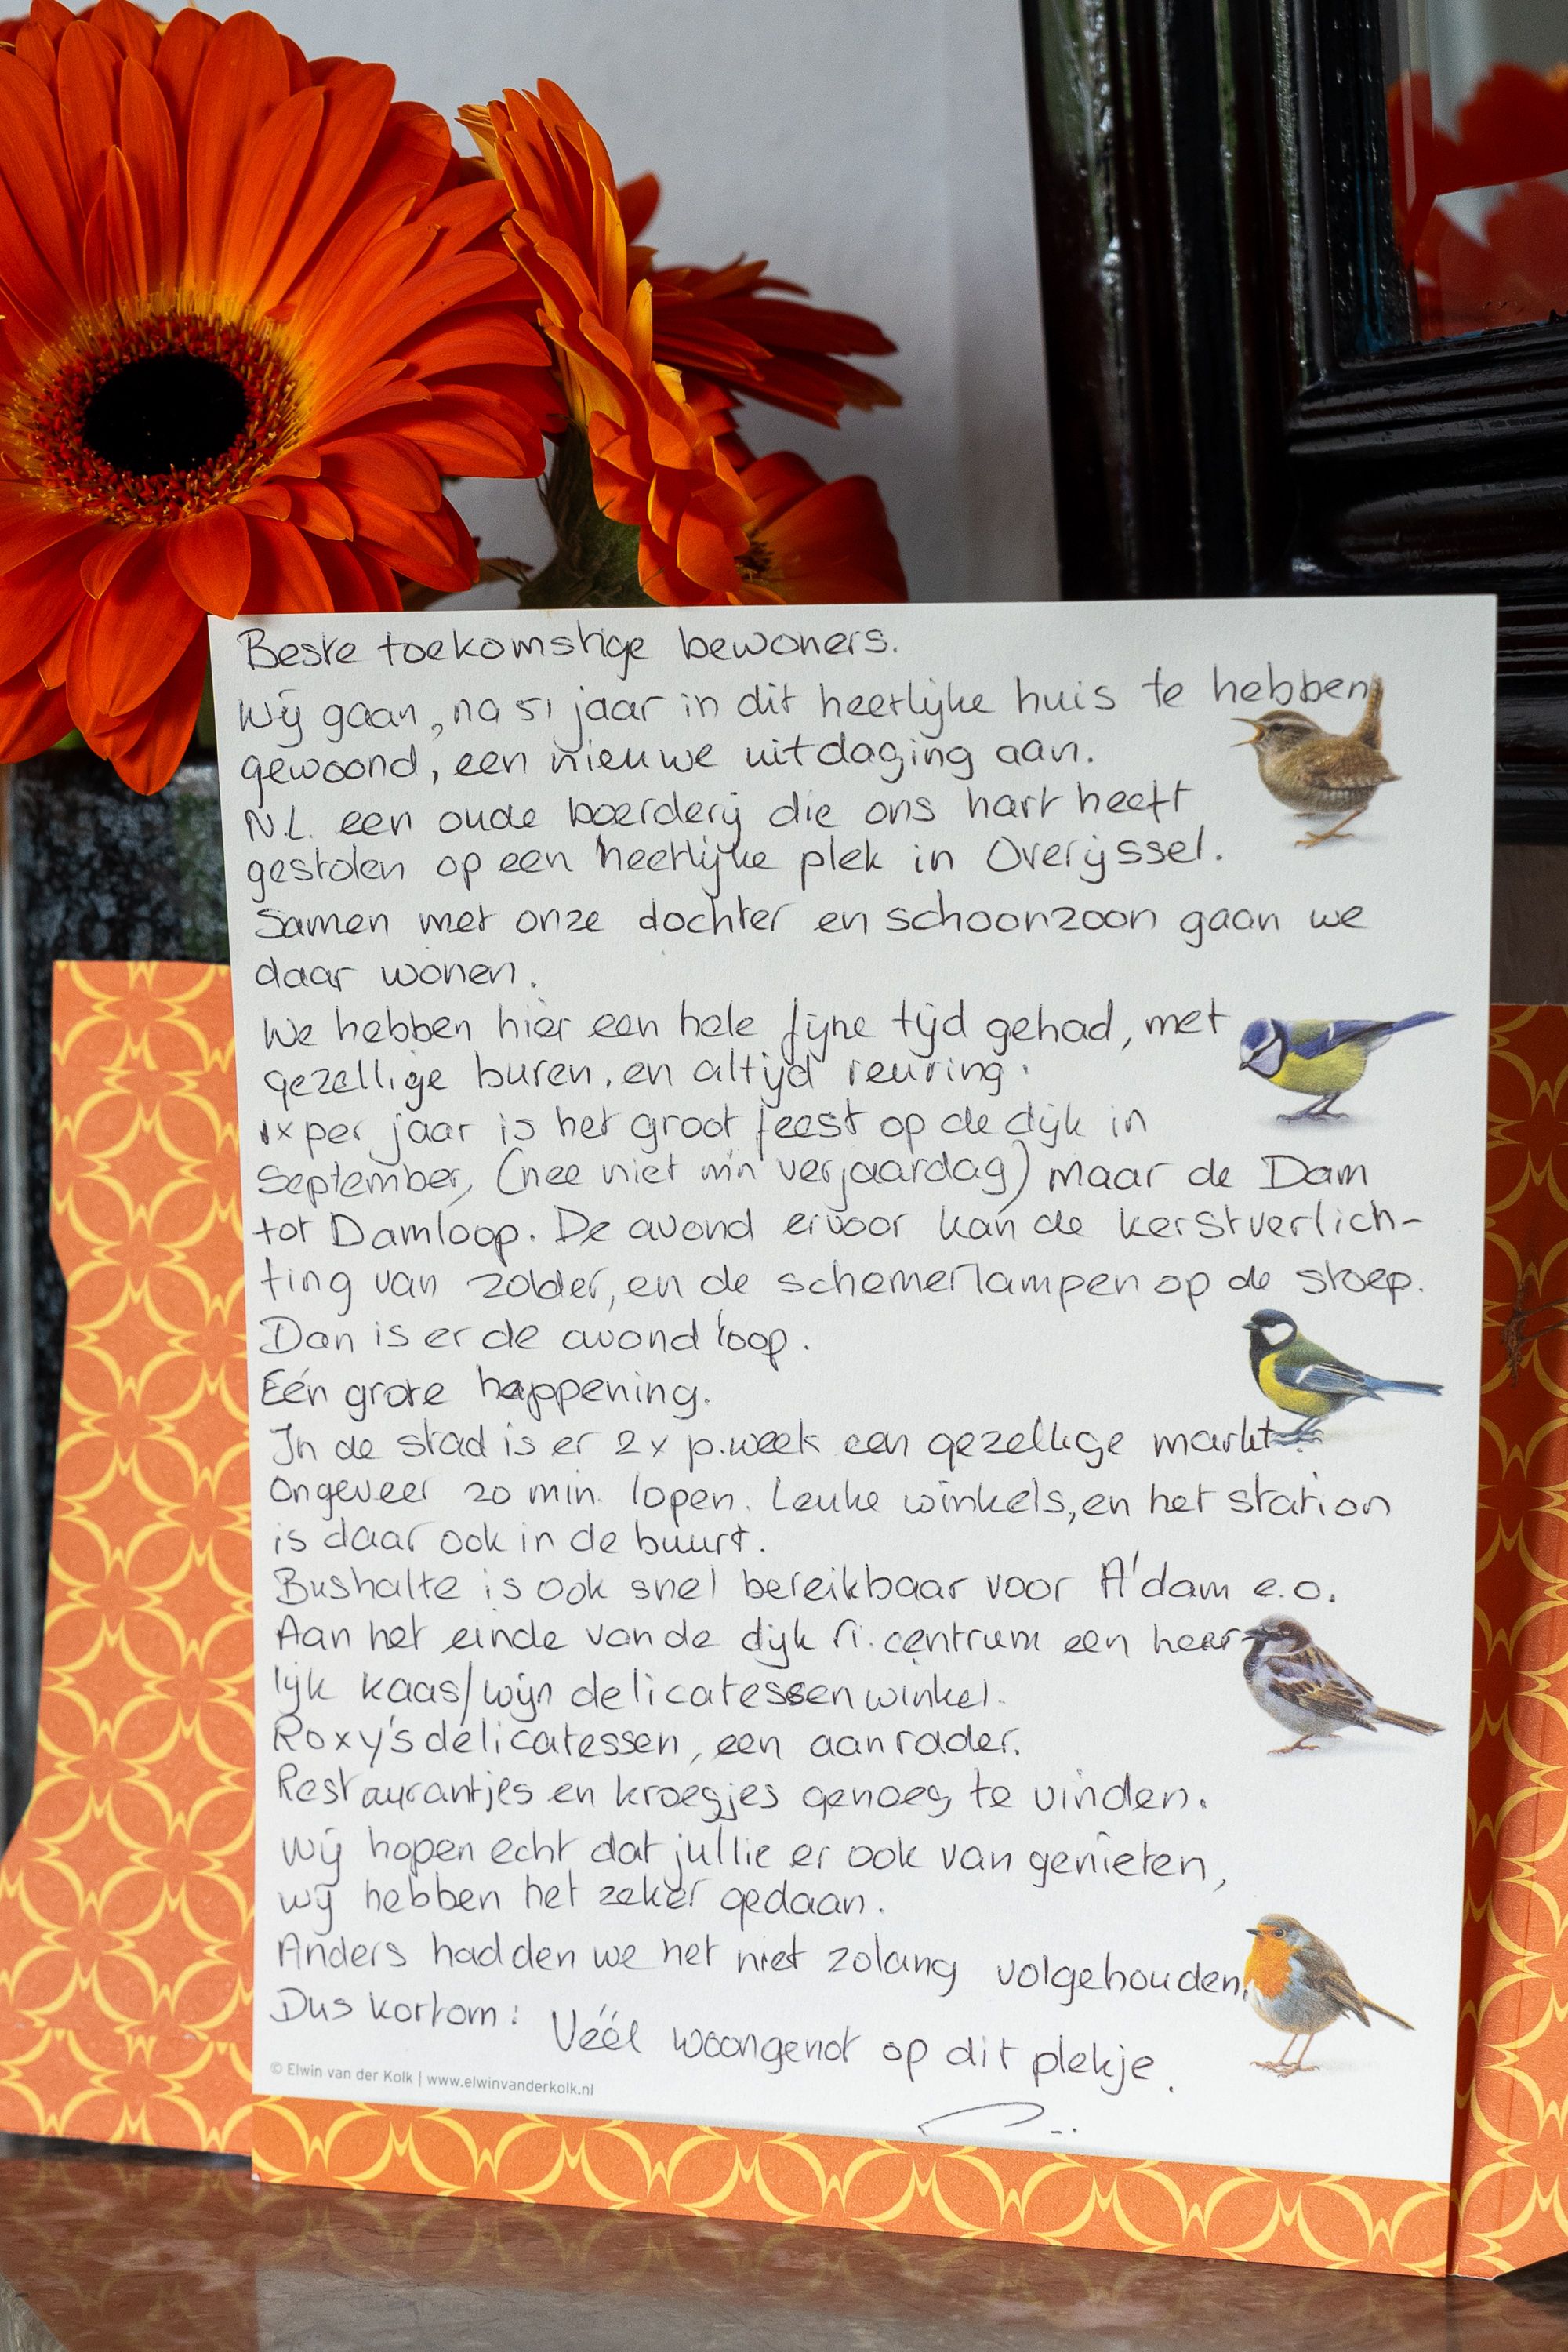 Beste toekomstige bewoners.
Wij gaan, na 51 jaar in dit heerlijke huis te hebben
gewoond, een nieuwe uitdaging aan.
N.L. een oude boerderij die ons hart heeft
gestolen op een heerlijke plek in Overijssel.
Samen met onze dochter en schoonzoon gaan we
daar wonen.
We hebben hier een hele fijne tijd gehad, met
gezellige buren, en altijd reuring.
1x per jaar is het groot feest op de dijk in
September, (nee niet m'n verjaardag) maar de Dam
tot Damloop. De avond ervoor kan de kerstverlich-
ting van zolder, en de schemerlampen op de stoep.
Dan is er de avond loop.
Eén grote happening.
In de stad is er 2x p.week een gezellige markt.
Ongeveer 20 min. lopen. Leuke winkels, en het station
is daar ook in de buurt.
Bushalte is ook snel bereikbaar voor A'dam e.o.
Aan het einde van de dijk ri. centrum een heer-
lijk kaas/wijn delicatessen winkel.
Roxy's delicatessen, een aanrader.
Restaurantjes en kroegjes genoeg te vinden.
Wij hopen echt dat jullie er ook van genieten,
wij hebben het zeker gedaan.
Anders hadden we het niet zolang volgehouden.
Dus kortom: Véél woongenot op dit plekje.
© Elwin van der Kolk | www.elwinvanderkolk.nl